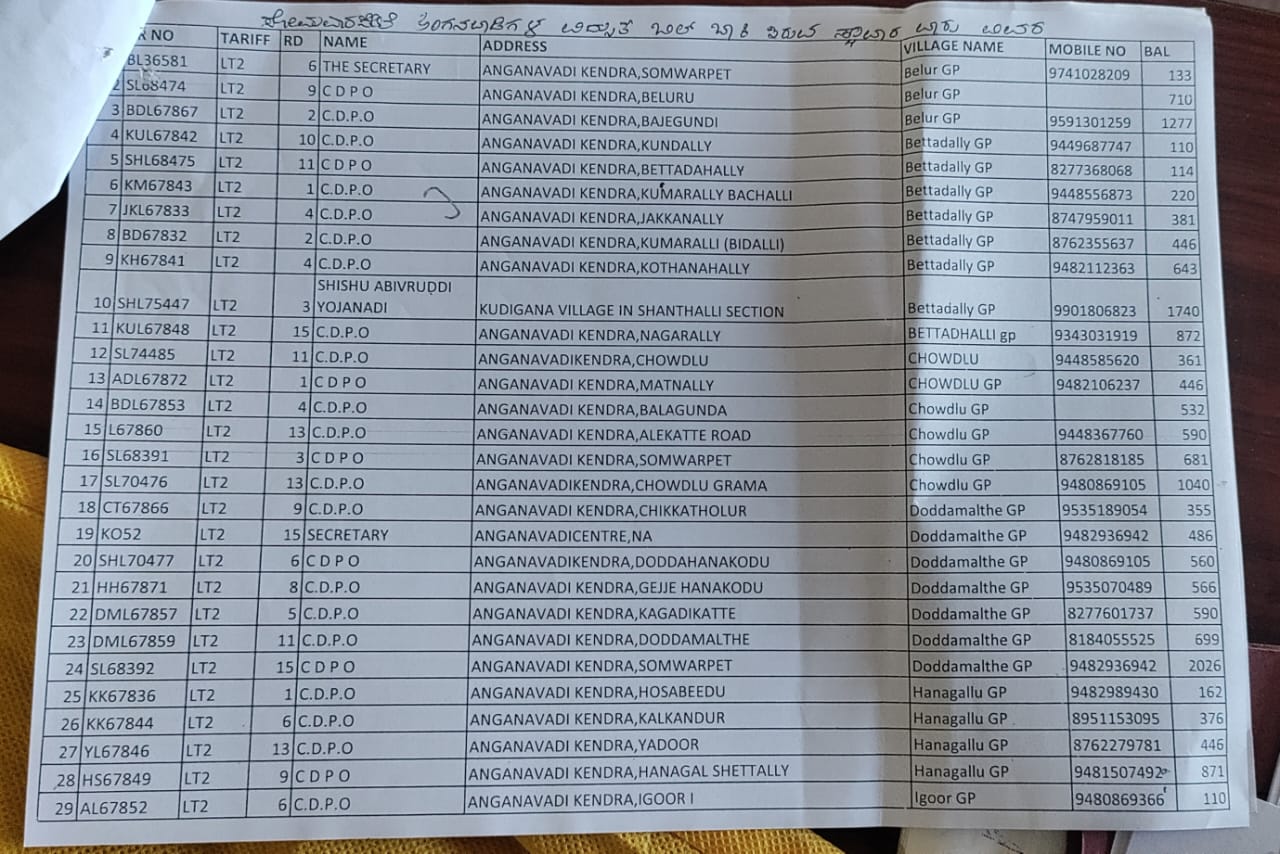 ಅಂಗನವಾಡಿಗಳ ವಿದ್ಯುತ್ ಬಿಲ್ ಬಾಕಿ ಇರುವ ಸ್ಥಾವರ
R NO TARIFF RD NAME ADDRESS VILLAGE NAME MOBILE NO BAL
BL36581 LT2 6 THE SECRETARY ANGANAVADI KENDRA,SOMWARPET Belur GP 9741028209 133
2 SL68474 LT2 9 C D P O ANGANAVADI KENDRA,BELURU Belur GP 710
3 BDL67867 LT2 2 C.D.P.O ANGANAVADI KENDRA,BAJEGUNDI Belur GP 9591301259 1277
4 KUL67842 LT2 10 C.D.P.O ANGANAVADI KENDRA,KUNDALLY Bettadally GP 9449687747 110
5 SHL68475 LT2 11 C D P O ANGANAVADI KENDRA,BETTADAHALLY Bettadally GP 8277368068 114
6 KM67843 LT2 1 C.D.P.O ANGANAVADI KENDRA,KUMARALLY BACHALLI Bettadally GP 9448556873 220
7 JKL67833 LT2 4 C.D.P.O ANGANAVADI KENDRA,JAKKANALLY Bettadally GP 8747959011 381
8 BD67832 LT2 2 C.D.P.O ANGANAVADI KENDRA,KUMARALLI (BIDALLI) Bettadally GP 8762355637 446
9 KH67841 LT2 4 C.D.P.O ANGANAVADI KENDRA,KOTHANAHALLY Bettadally GP 9482112363 643
SHISHU ABIVRUDDI
10 SHL75447 LT2 3 YOJANADI KUDIGANA VILLAGE IN SHANTHALLI SECTION Bettadally GP 9901806823 1740
11 KUL67848 LT2 15 C.D.P.O ANGANAVADI KENDRA,NAGARALLY BETTADHALLI gp 9343031919 872
12 SL74485 LT2 11 C.D.P.O ANGANAVADIKENDRA,CHOWDLU CHOWDLU 9448585620 361
13 ADL67872 LT2 1 C D P O ANGANAVADI KENDRA,MATNALLY CHOWDLU GP 9482106237 446
14 BDL67853 LT2 4 C.D.P.O ANGANAVADI KENDRA,BALAGUNDA Chowdlu GP 532
15 L67860 LT2 13 C.D.P.O ANGANAVADI KENDRA,ALEKATTE ROAD Chowdlu GP 9448367760 590
16 SL68391 LT2 3 C D P O ANGANAVADI KENDRA,SOMWARPET Chowdlu GP 8762818185 681
17 SL70476 LT2 13 C.D.P.O ANGANAVADIKENDRA,CHOWDLU GRAMA Chowdlu GP 9480869105 1040
18 CT67866 LT2 9 C.D.P.O ANGANAVADI KENDRA,CHIKKATHOLUR Doddamalthe GP 9535189054 355
19 KO52 LT2 15 SECRETARY ANGANAVADICENTRE,NA Doddamalthe GP 9482936942 486
20 SHL70477 LT2 6 C D P O ANGANAVADIKENDRA,DODDAHANAKODU Doddamalthe GP 9480869105 560
21 HH67871 LT2 8 C.D.P.O ANGANAVADI KENDRA,GEJJE HANAKODU Doddamalthe GP 9535070489 566
22 DML67857 LT2 5 C.D.P.O ANGANAVADI KENDRA,KAGADIKATTE Doddamalthe GP 8277601737 590
23 DML67859 LT2 11 C.D.P.O ANGANAVADI KENDRA,DODDAMALTHE Doddamalthe GP 8184055525 699
24 SL68392 LT2 15 C D P O ANGANAVADI KENDRA,SOMWARPET Doddamalthe GP 9482936942 2026
25 KK67836 LT2 1 C.D.P.O ANGANAVADI KENDRA,HOSABEEDU Hanagallu GP 9482989430 162
26 KK67844 LT2 6 C.D.P.O ANGANAVADI KENDRA,KALKANDUR Hanagallu GP 8951153095 376
27 YL67846 LT2 13 C.D.P.O ANGANAVADI KENDRA,YADOOR Hanagallu GP 8762279781 446
28 HS67849 LT2 9 C D P O ANGANAVADI KENDRA,HANAGAL SHETTALLY Hanagallu GP 9481507492 871
29 AL67852 LT2 6 C.D.P.O ANGANAVADI KENDRA,IGOOR I Igoor GP 9480869366 110